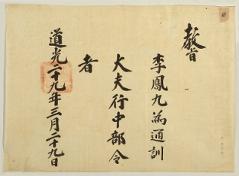 教旨
李鳳九爲通訓
大夫行中部令
者
道光二十九年三月二十九日